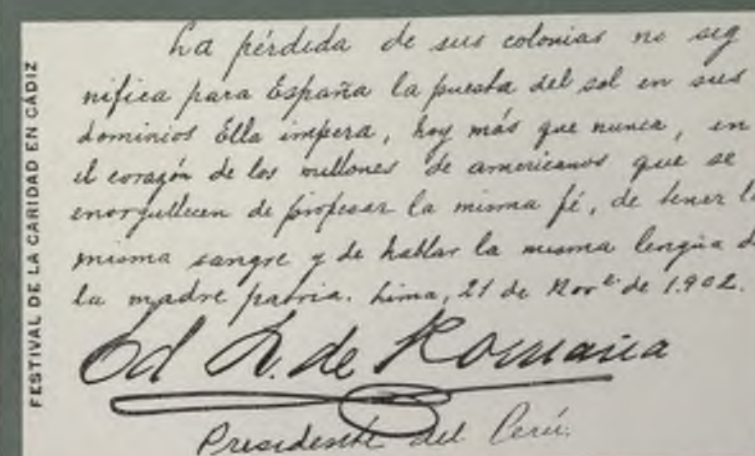 FESTIVAL DE LA CARIDAD EN CÁDIZ
La pérdida de sus colonias no sig
nifica para España la puesta del sol en sus
dominios Ella impera, hoy más que nunca, en
el corazón de los millones de americanos que se
enorgullecen de profesar la misma fé, de tener l
misma sangre y de hablar la misma lengua d
la madre patria. Lima, 21 de Nore. de 1.902.
Ed L. de Romaña
Presidente del Perú.